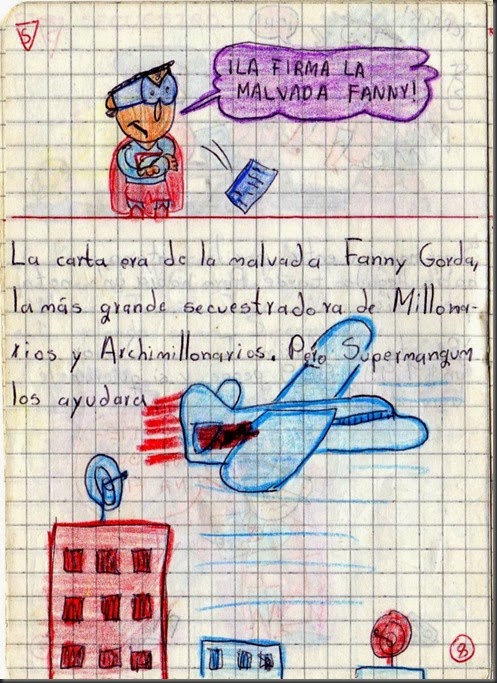 S
¡LA FIRMA LA
MALVADA FANNY!
La carta era de la malvada Fanny Gorda,
la más grande secuestradora de Millona-
rios y Archimillonarios. Pero Supermangum
los ayudara
8